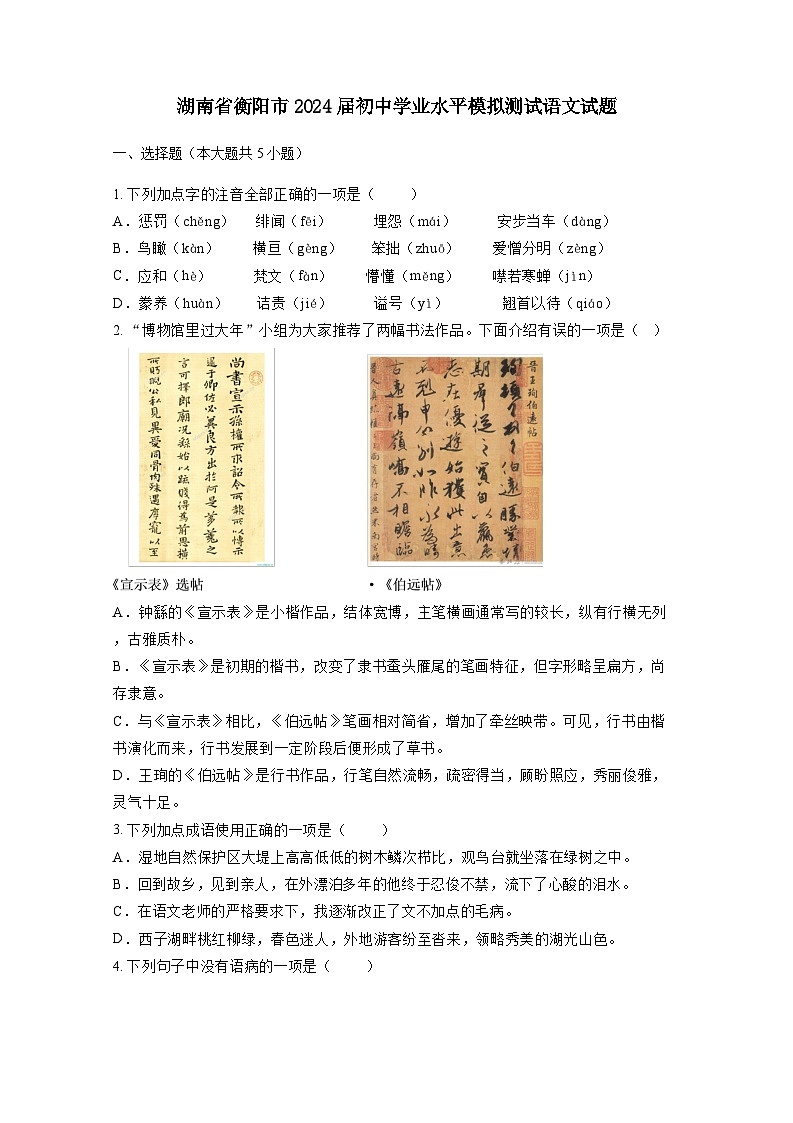 湖南省衡阳市2024届初中学业水平模拟测试语文试题
一、选择题（本大题共5小题）
1. 下列加点字的注音全部正确的一项是（　　）
A．惩罚（chěng）　绯闻（fěi）　埋怨（mái）　安步当车（dàng）
B．鸟瞰（kàn）　横亘（gèng）　笨拙（zhuō）　爱憎分明（zèng）
C．应和（hè）　梵文（fàn）　懵懂（měng）　噤若寒蝉（jìn）
D．豢养（huàn）　诘责（jié）　谥号（yì）　翘首以待（qiáo）
2. “博物馆里过大年”小组为大家推荐了两幅书法作品。下面介绍有误的一项是（　）
尚书宣示孙权所求诏令所报所以博示
逮于卿佐必冀良方出于阿是刍荛之
言可择郎庙况繇始以疏贱得为前恩横
所盼睨公私见异爱同骨肉殊遇厚宠以至
晋王珣伯远帖
珣顿首顿首伯远胜业情
期群从之宝自以羸患
志在优游始获此出意
不剋申分别如昨永为畴
古远隔岭峤不相瞻临
《宣示表》选帖
·《伯远帖》
A．钟繇的《宣示表》是小楷作品，结体宽博，主笔横画通常写的较长，纵有行横无列
，古雅质朴。
B．《宣示表》是初期的楷书，改变了隶书蚕头雁尾的笔画特征，但字形略呈扁方，尚
存隶意。
C．与《宣示表》相比，《伯远帖》笔画相对简省，增加了牵丝映带。可见，行书由楷
书演化而来，行书发展到一定阶段后便形成了草书。
D．王珣的《伯远帖》是行书作品，行笔自然流畅，疏密得当，顾盼照应，秀丽俊雅，
灵气十足。
3. 下列加点成语使用正确的一项是（　　）
A．湿地自然保护区大堤上高高低低的树木鳞次栉比，观鸟台就坐落在绿树之中。
B．回到故乡，见到亲人，在外漂泊多年的他终于忍俊不禁，流下了心酸的泪水。
C．在语文老师的严格要求下，我逐渐改正了文不加点的毛病。
D．西子湖畔桃红柳绿，春色迷人，外地游客纷至沓来，领略秀美的湖光山色。
4. 下列句子中没有语病的一项是（　　）